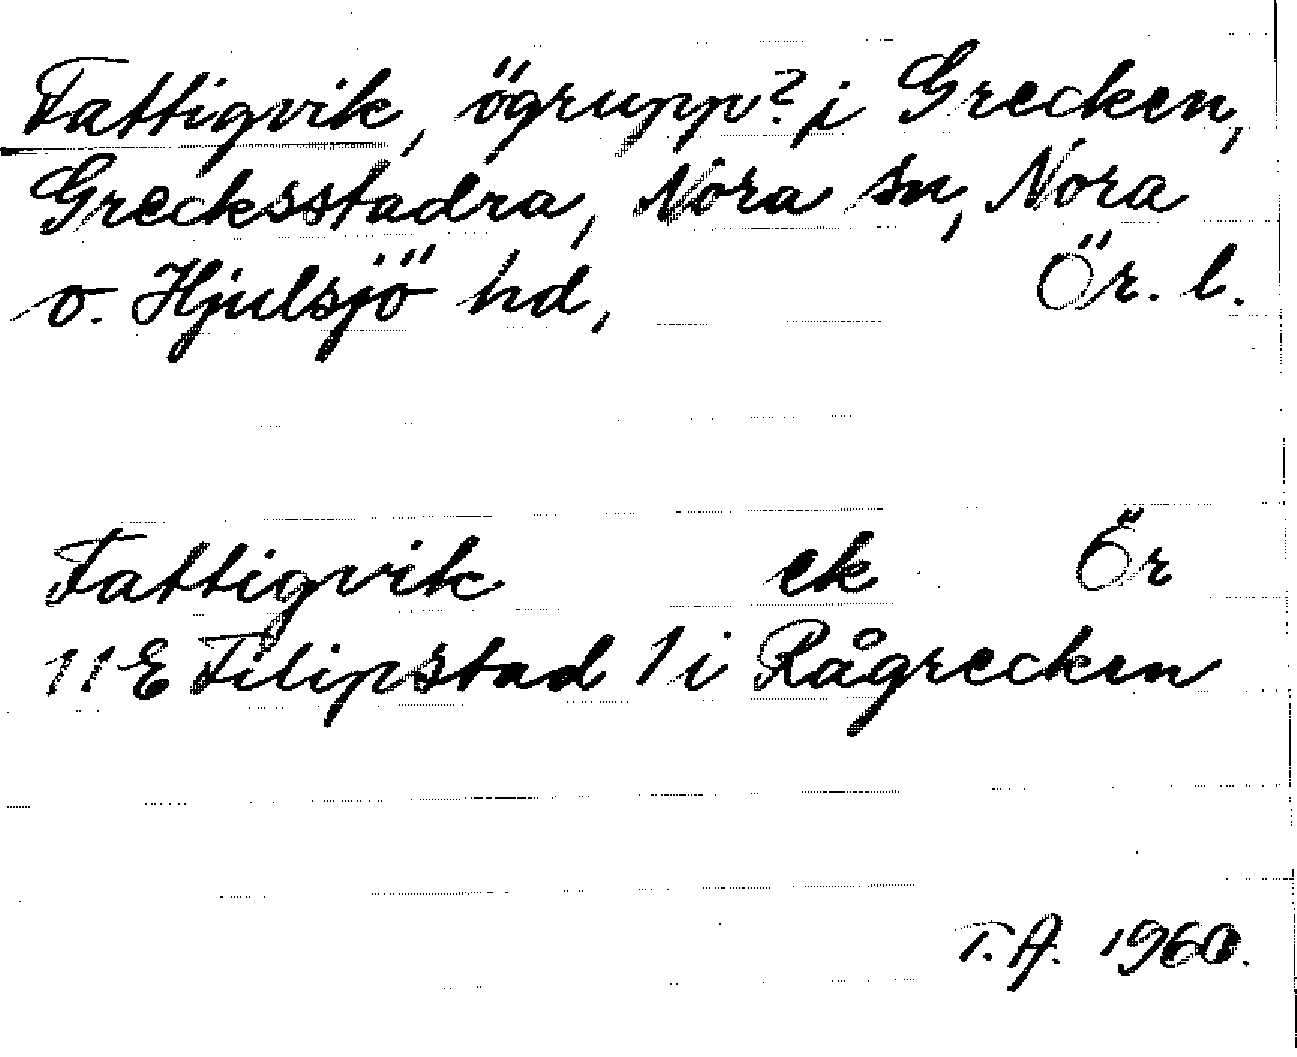 Fattigvik, ögrupp? i Grecken,
Grecksstadra, Nora sn, Nora
o. Hjulsjö hd, Ör. l.
Fattigvik ek Ör
11E Filipstad 1 i Rågrecken
T.A. 1960.